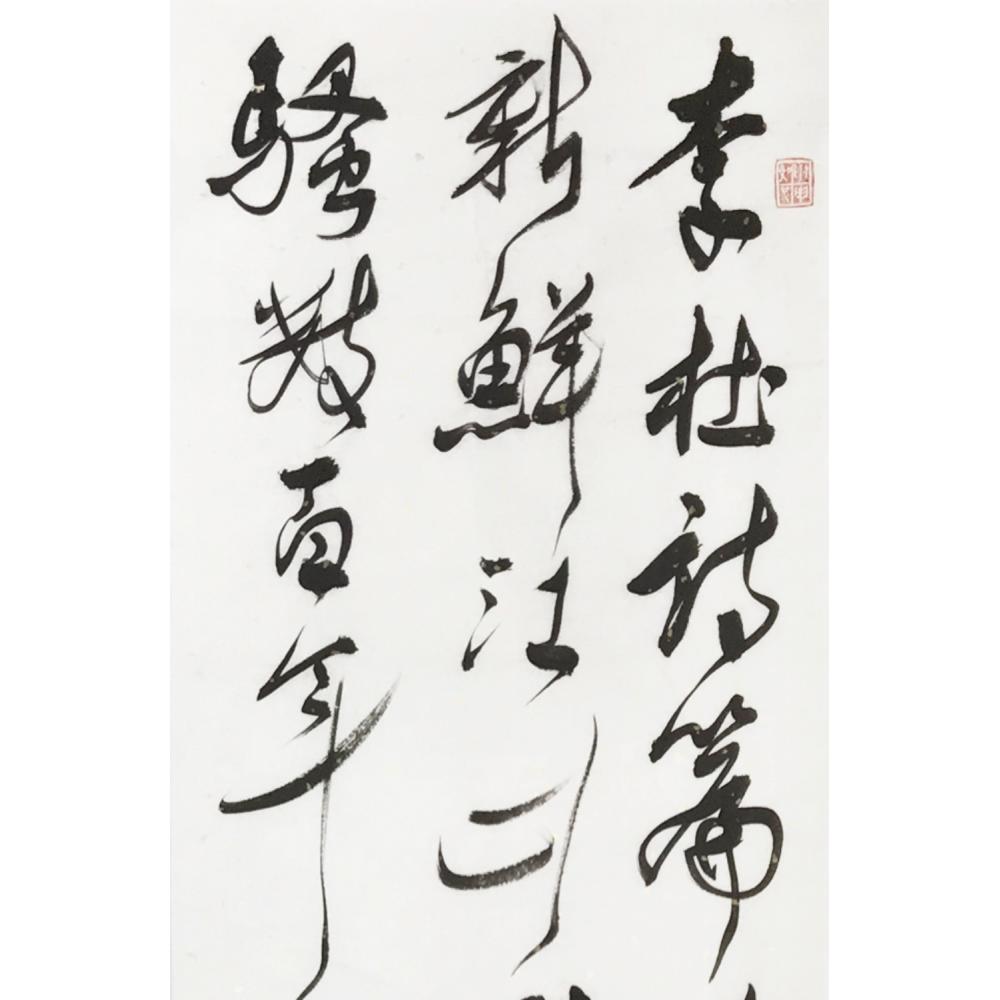 李杜詩篇
新鮮江山
騷數百年